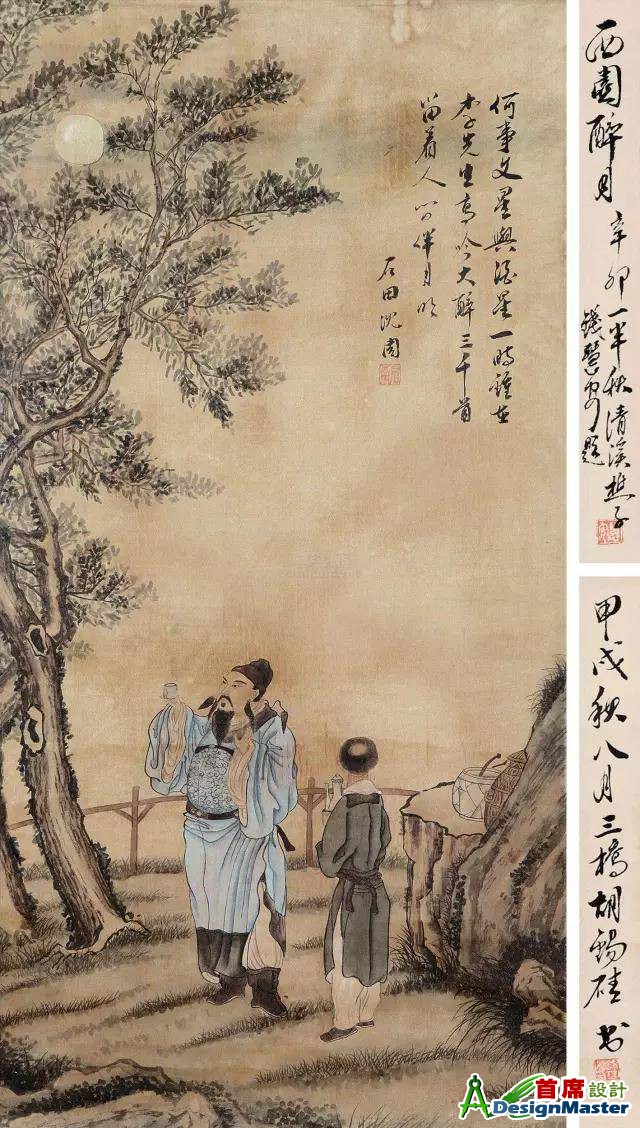 何事文星與酒星一時鍾在
李先生高吟大醉三千首
留着人間伴月明
石田沈周
西園醉月 辛卯一半秋清溪樵子
錢慧安題
甲戌秋八月三橋胡錫珪書
首席設計
ADesignMaster